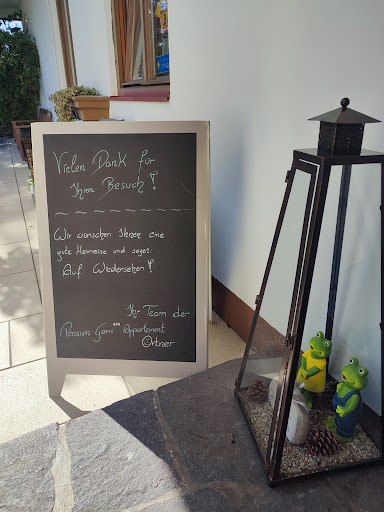 Vielen Dank für
Ihren Besuch!
Wir wünschen Ihnen eine
gute Heimreise und sagen:
Auf Wiedersehen!
Ihr Team der
Pension Garni*** Appartement
Ortner